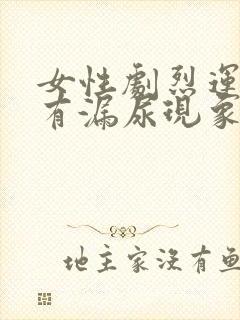 女性劇烈運
有漏尿現象
地主家没有鱼